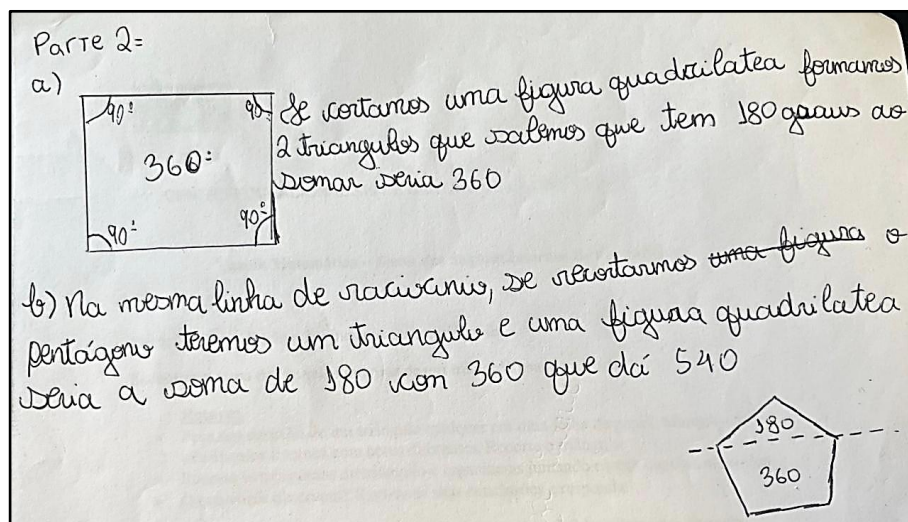 Parte 2=
a)
90º 90º
360º
90º 90º
Se cortamos uma figura quadrilatea formamos
2 triangulos que sabemos que tem 180 graus ao
somar seria 360
b) Na mesma linha de raciocinio, se recortarmos uma figura o
pentágono teremos um triangulo e uma figura quadrilatea
seria a soma de 180 con 360 que dá 540
180
360